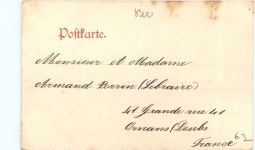 Postkarte.
Monsieur et Madame
Armand Perrin (Libraire)
41 Grande rue 41
Ornans (Doubs
France